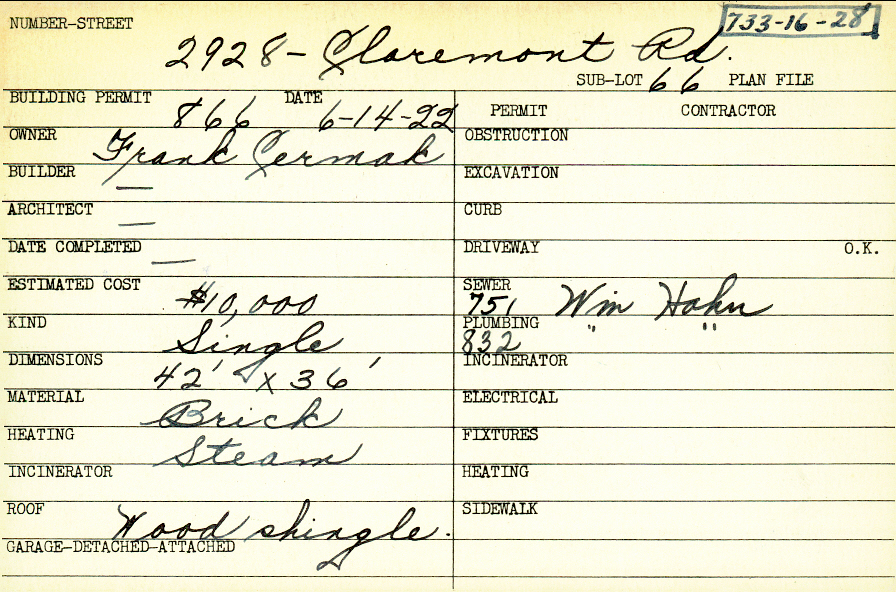 NUMBER-STREET
733-16-28
2928- Claremont Rd.
SUB-LOT 66 PLAN FILE
BUILDING PERMIT 866 DATE 6-14-22
PERMIT CONTRACTOR
OWNER Frank Cermak
OBSTRUCTION
BUILDER —
EXCAVATION
ARCHITECT —
CURB
DATE COMPLETED —
DRIVEWAY O.K.
ESTIMATED COST $10,000
SEWER 751 Wm Hahn
KIND Single
PLUMBING 832 " "
DIMENSIONS 42' x 36'
INCINERATOR
MATERIAL Brick
ELECTRICAL
HEATING Steam
FIXTURES
INCINERATOR
HEATING
ROOF Wood shingle.
SIDEWALK
GARAGE-DETACHED-ATTACHED